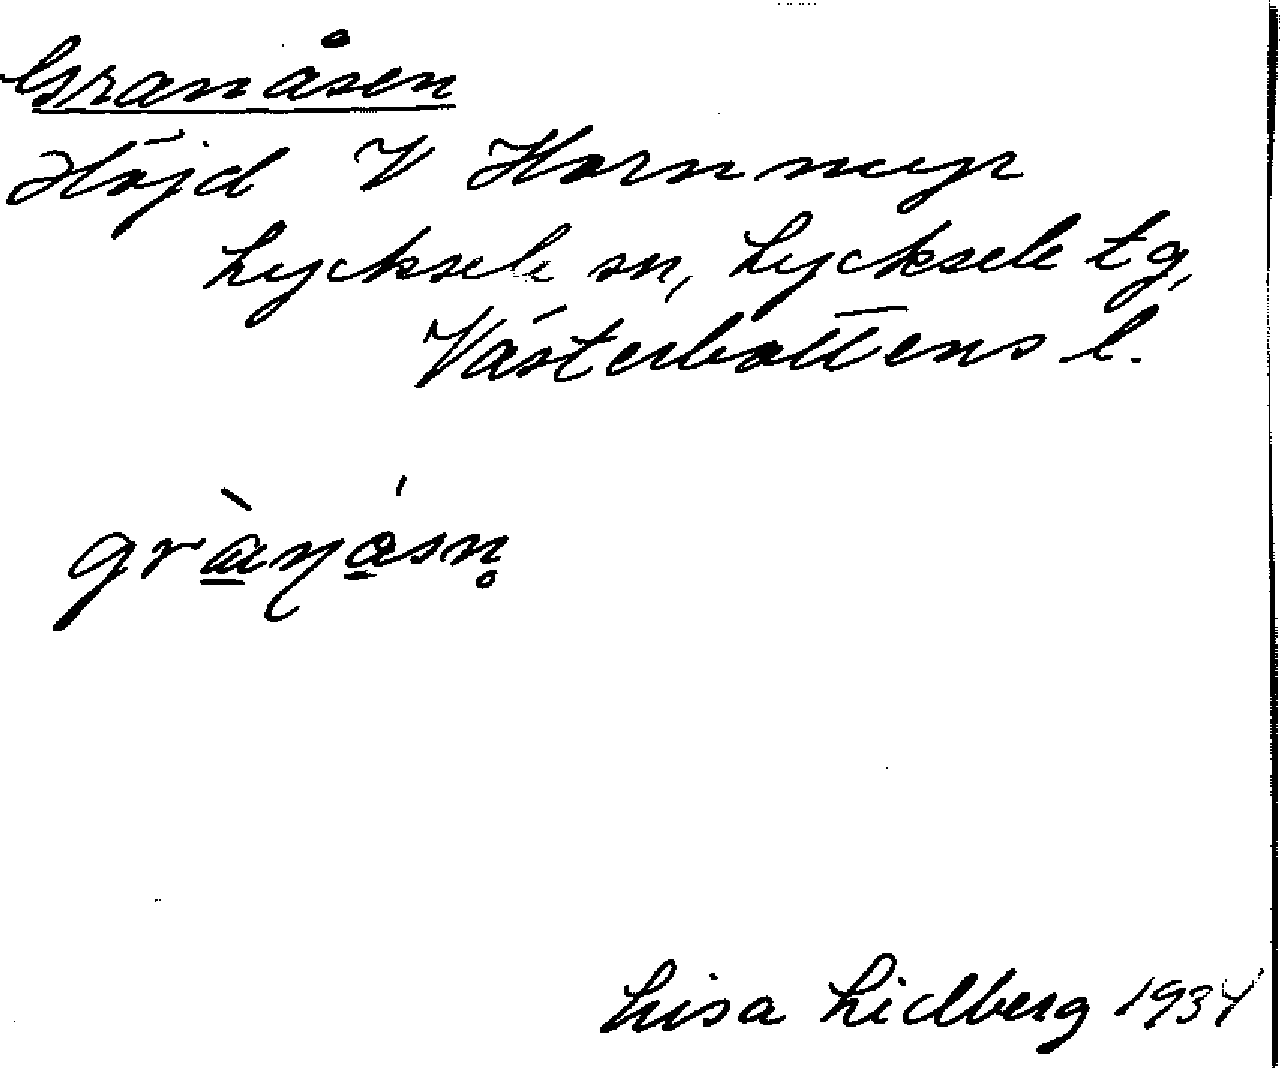 Granåsen
Höjd V Hornmyr
Lycksele sn, Lycksele tg,
Västerbottens l.
grànåsn̥
Lisa Lidberg 1934